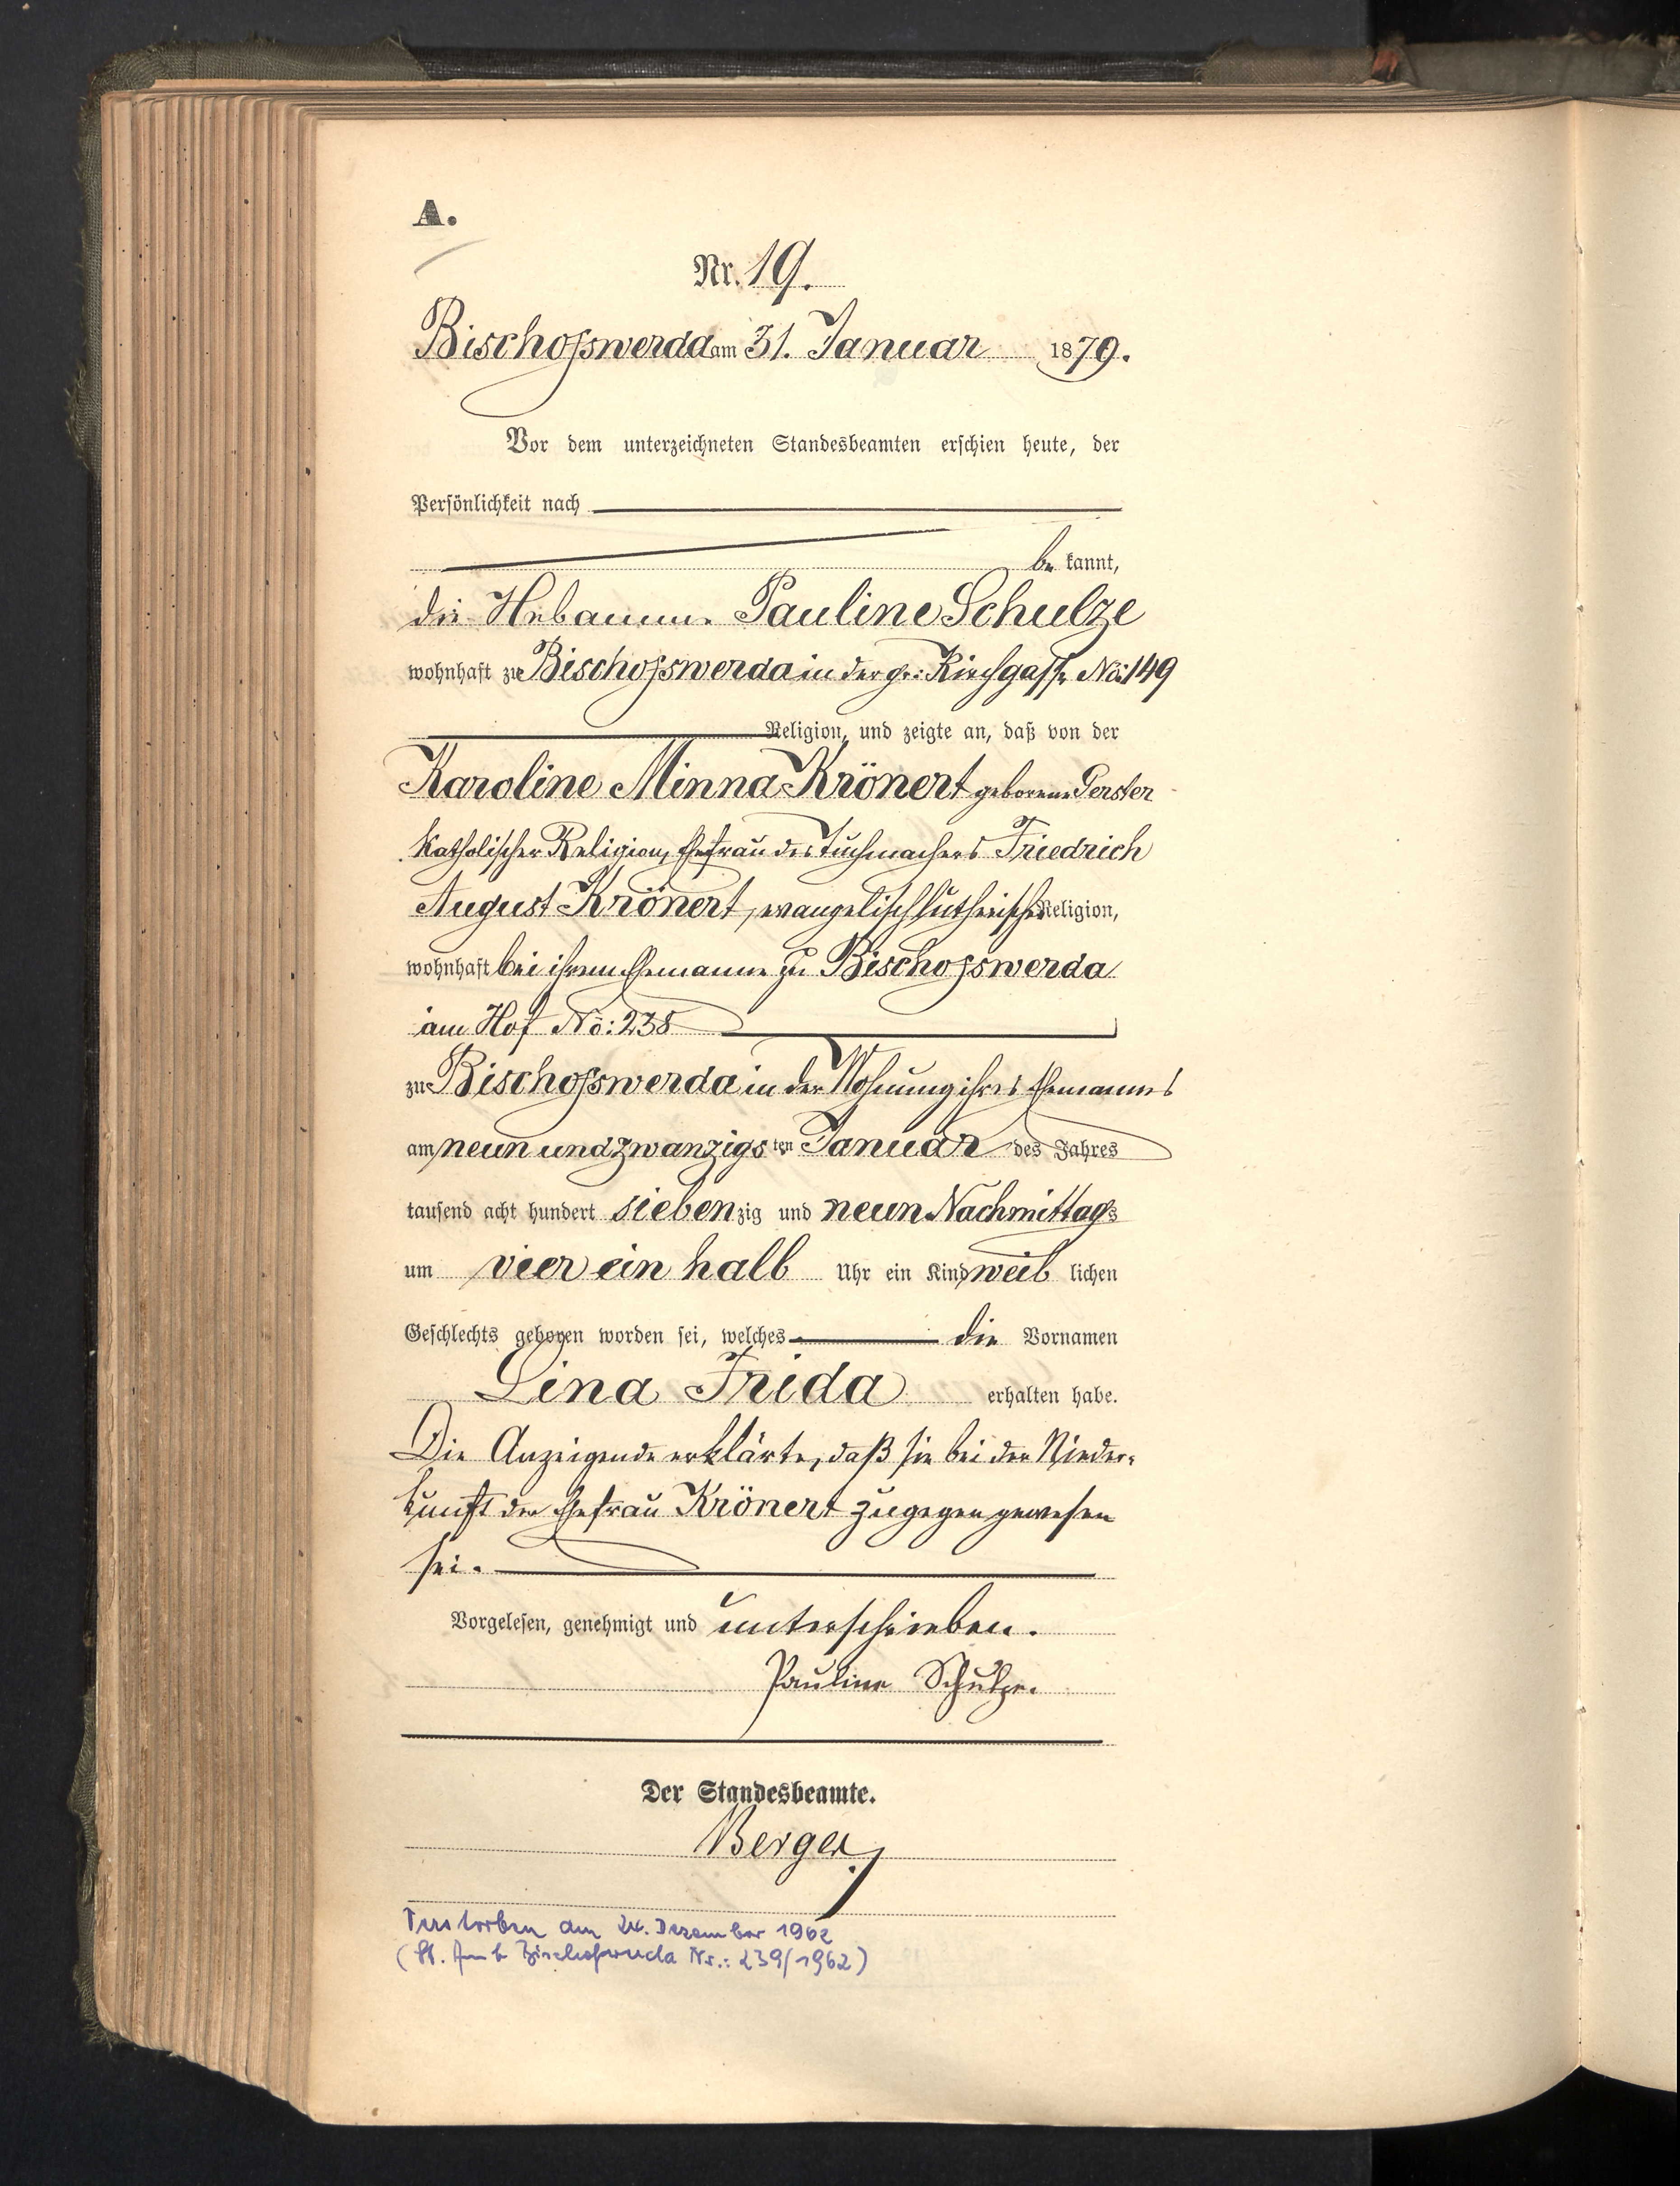 A.
Nr. 19.
Bischofswerda am 31. Januar 1879.
Vor dem unterzeichneten Standesbeamten erschien heute, der
Persönlichkeit nach
be kannt,
die Hebamme Pauline Schulze
wohnhaft zu Bischofswerda in der gr: Kirchgasse No: 149
Religion, und zeigte an, daß von der
Karoline Minna Krönert geborene Gerster
katholischer Religion, Ehefrau des Tuchmachers Friedrich
August Krönert, evangelisch lutherischer Religion,
wohnhaft bei ihrem Ehemanne zu Bischofswerda
am Hof No: 238
zu Bischofswerda in der Wohnung ihres Ehemannes
am neun und zwanzigsten Januar des Jahres
tausend acht hundert siebenzig und neun Nachmittags
um vier ein halb Uhr ein Kind weib lichen
Geschlechts geboren worden sei, welches die Vornamen
Lina Frida erhalten habe.
Die Anzeigende erklärte, daß sie bei der Nieder-
kunft der Ehefrau Krönert zugegen gewesen
sei.
Vorgelesen, genehmigt und unterschrieben.
Pauline Schulze.
Der Standesbeamte.
Berger
Verstorben am 24. Dezember 1962
(St. Amt Bischofswerda Nr.: 239/1962)